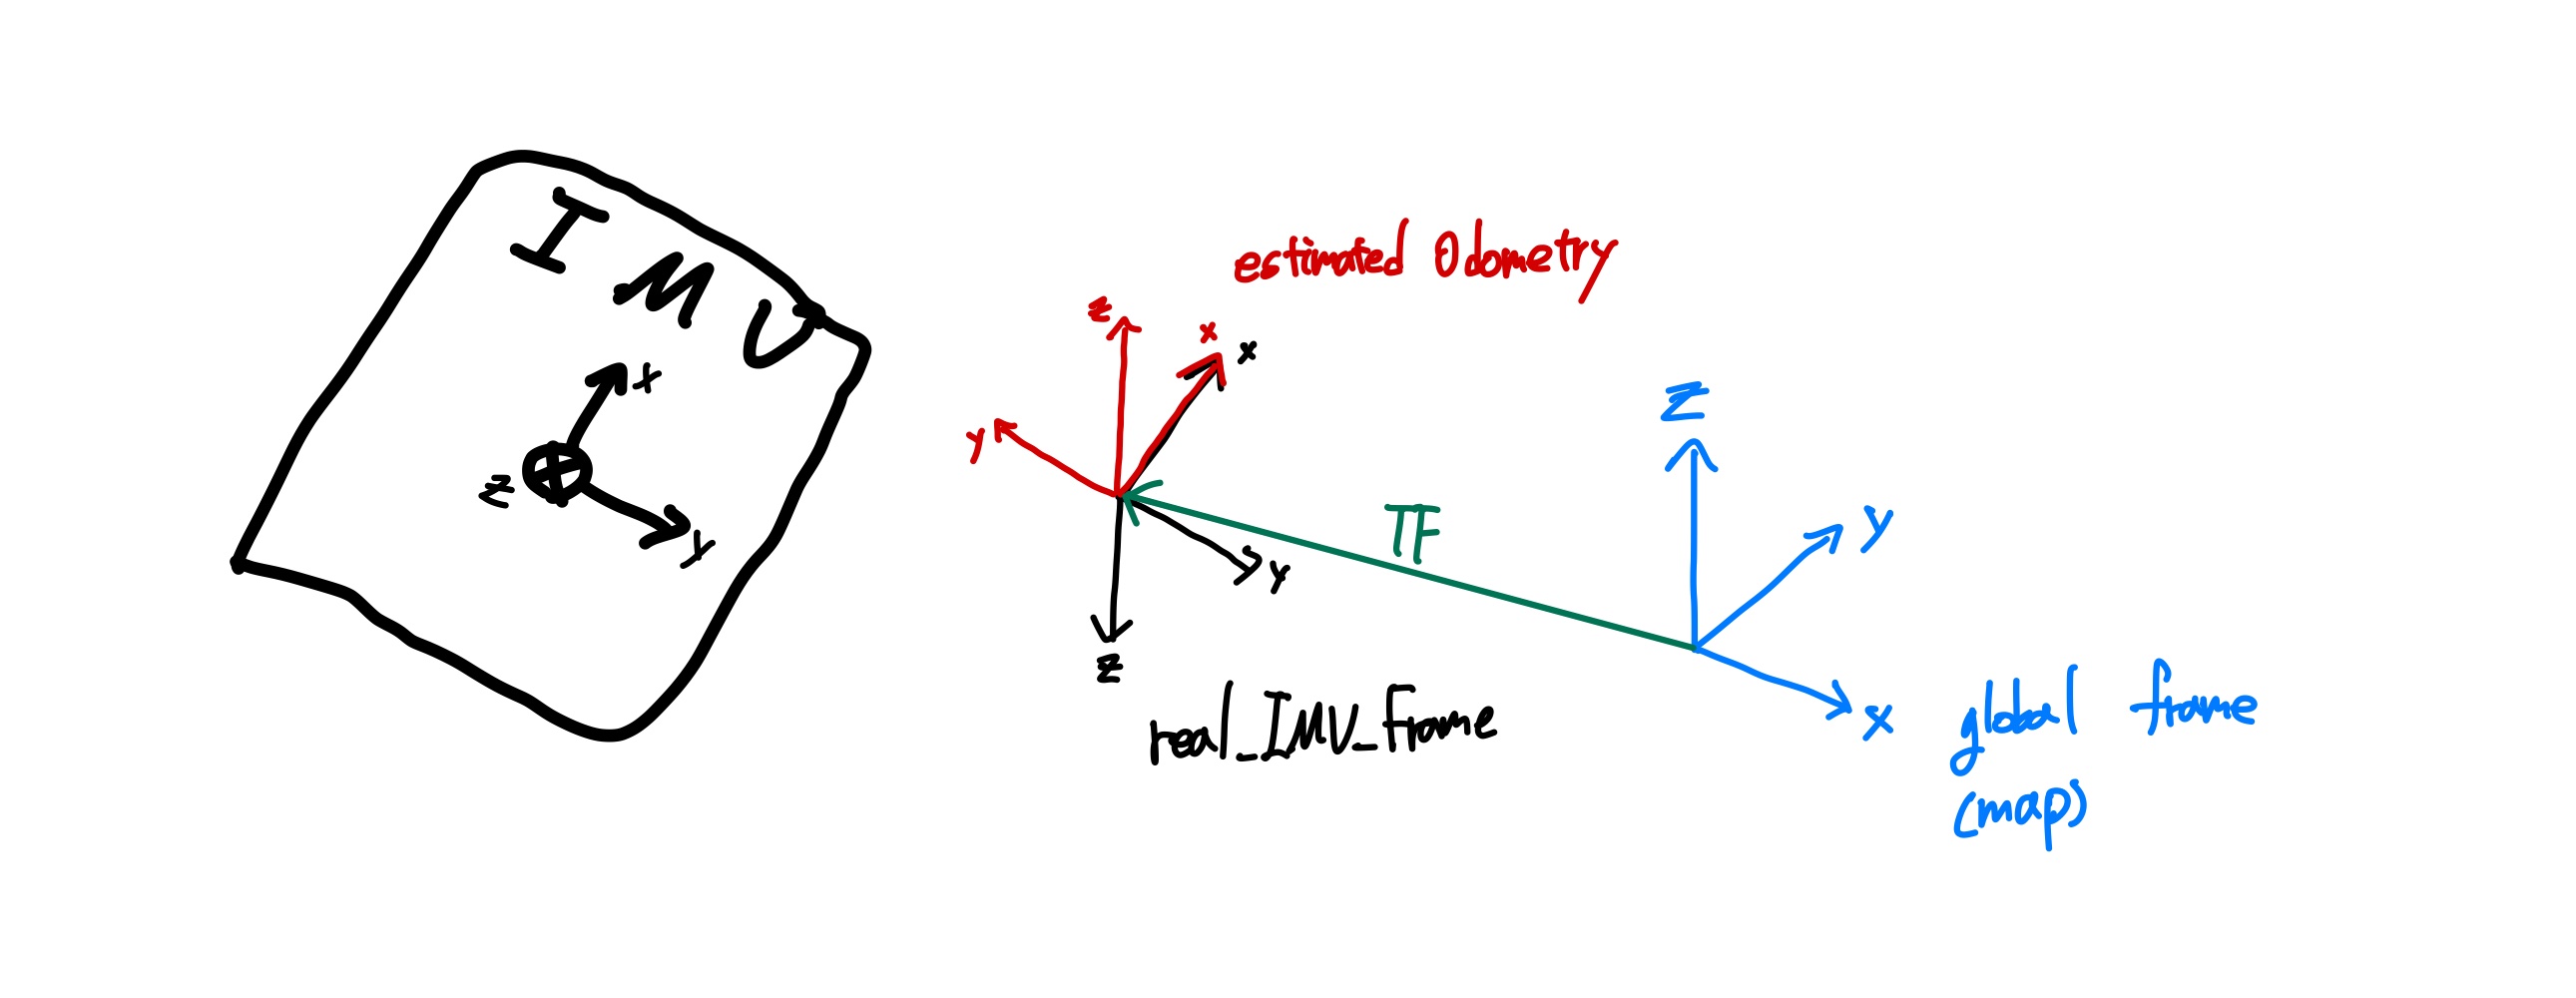 IMU
x
z
y
estimated Odometry
z
x
x
y
y
z
real_IMU_frame
TF
z
y
x
global frame
(map)